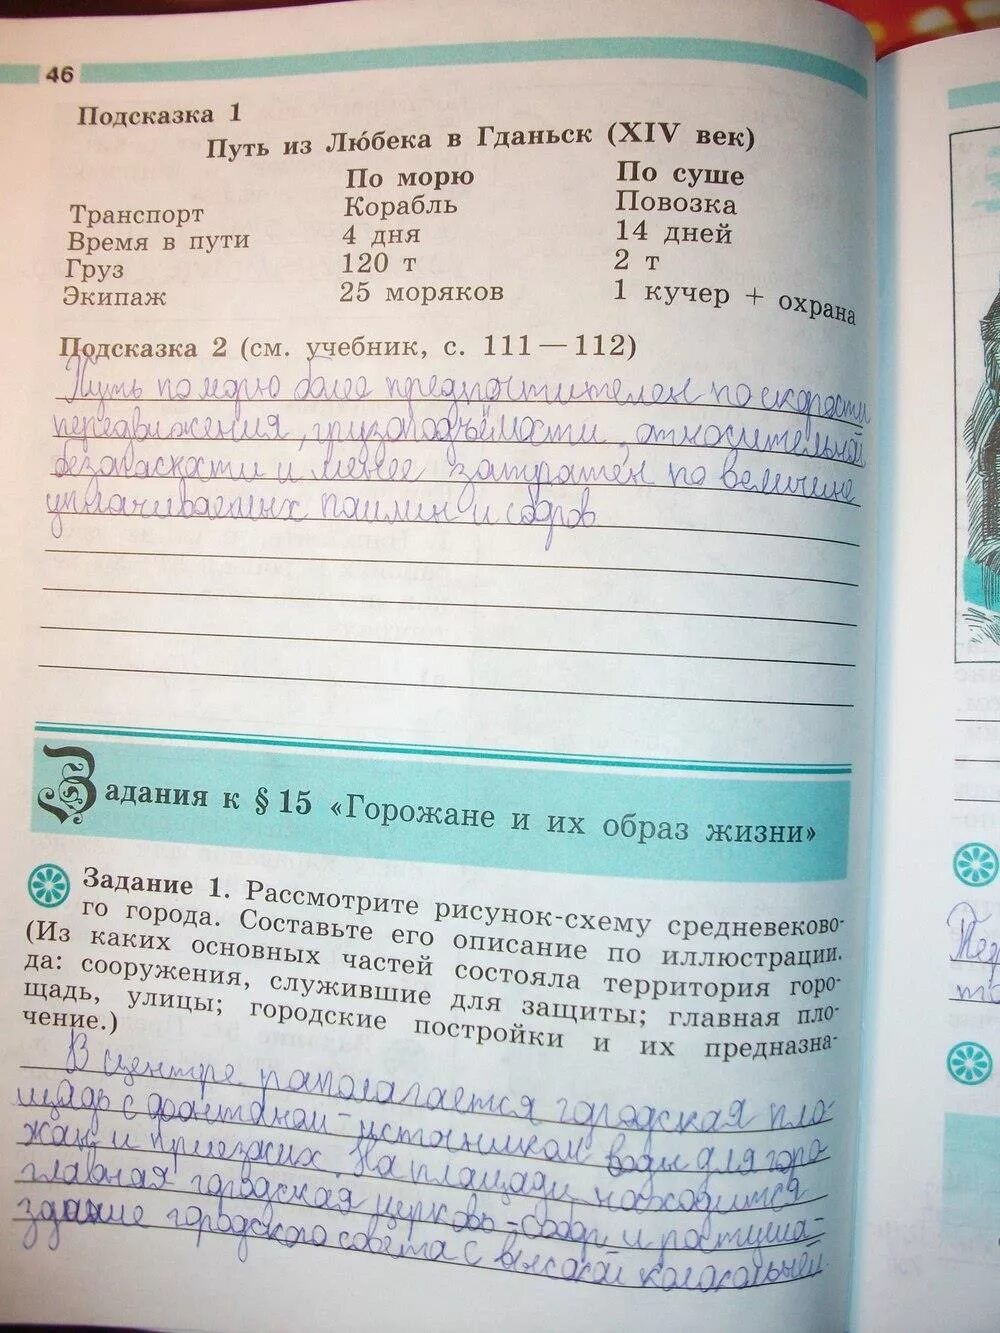 46
Подсказка 1
Путь из Лю́бека в Гданьск (XIV век)
По морю По суше
Транспорт Корабль Повозка
Время в пути 4 дня 14 дней
Груз 120 т 2 т
Экипаж 25 моряков 1 кучер + охрана
Подсказка 2 (см. учебник, с. 111—112)
Путь по морю более предпочтителен по скорости
передвижения, грузоподъёмости, относительной
безопасности и менее затратен по величине
уплачиваемых пошлин и сборов
Задания к § 15 «Горожане и их образ жизни»
Задание 1. Рассмотрите рисунок-схему средневеково-
го города. Составьте его описание по иллюстрации.
(Из каких основных частей состояла территория горо-
да: сооружения, служившие для защиты; главная пло-
щадь, улицы; городские постройки и их предназна-
чение.)
В центре распологается городская пло-
щадь с фонтаном - источником воды для горо-
жан и приезжих. На площади находится
главная городская церковь - собор и ратуша -
здание городского совета с высокой колокольней
Пер